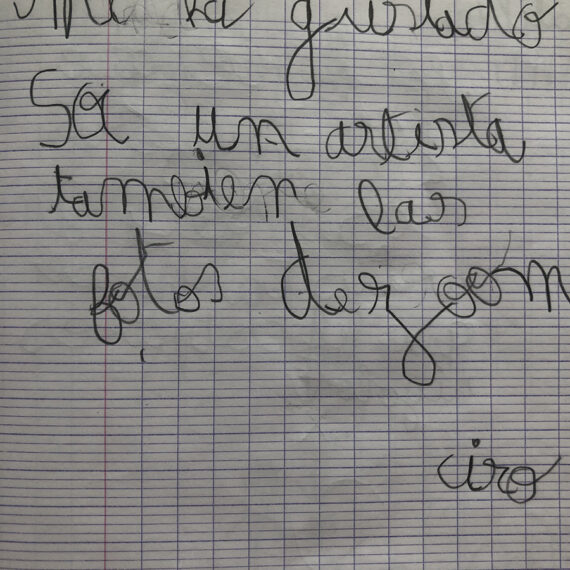 Me ha gustado
Sa un artista
tambien las
fotos der gom
ciro